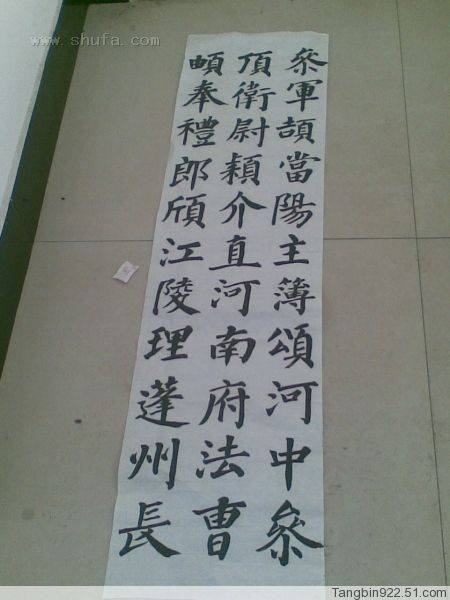 叅軍頡當陽主簿頌河中叅
頂衛尉頪介直河南府法曹
頔奉禮郎頎江陵理蓬州長
www.shufa.com
Tangbin922.51.com